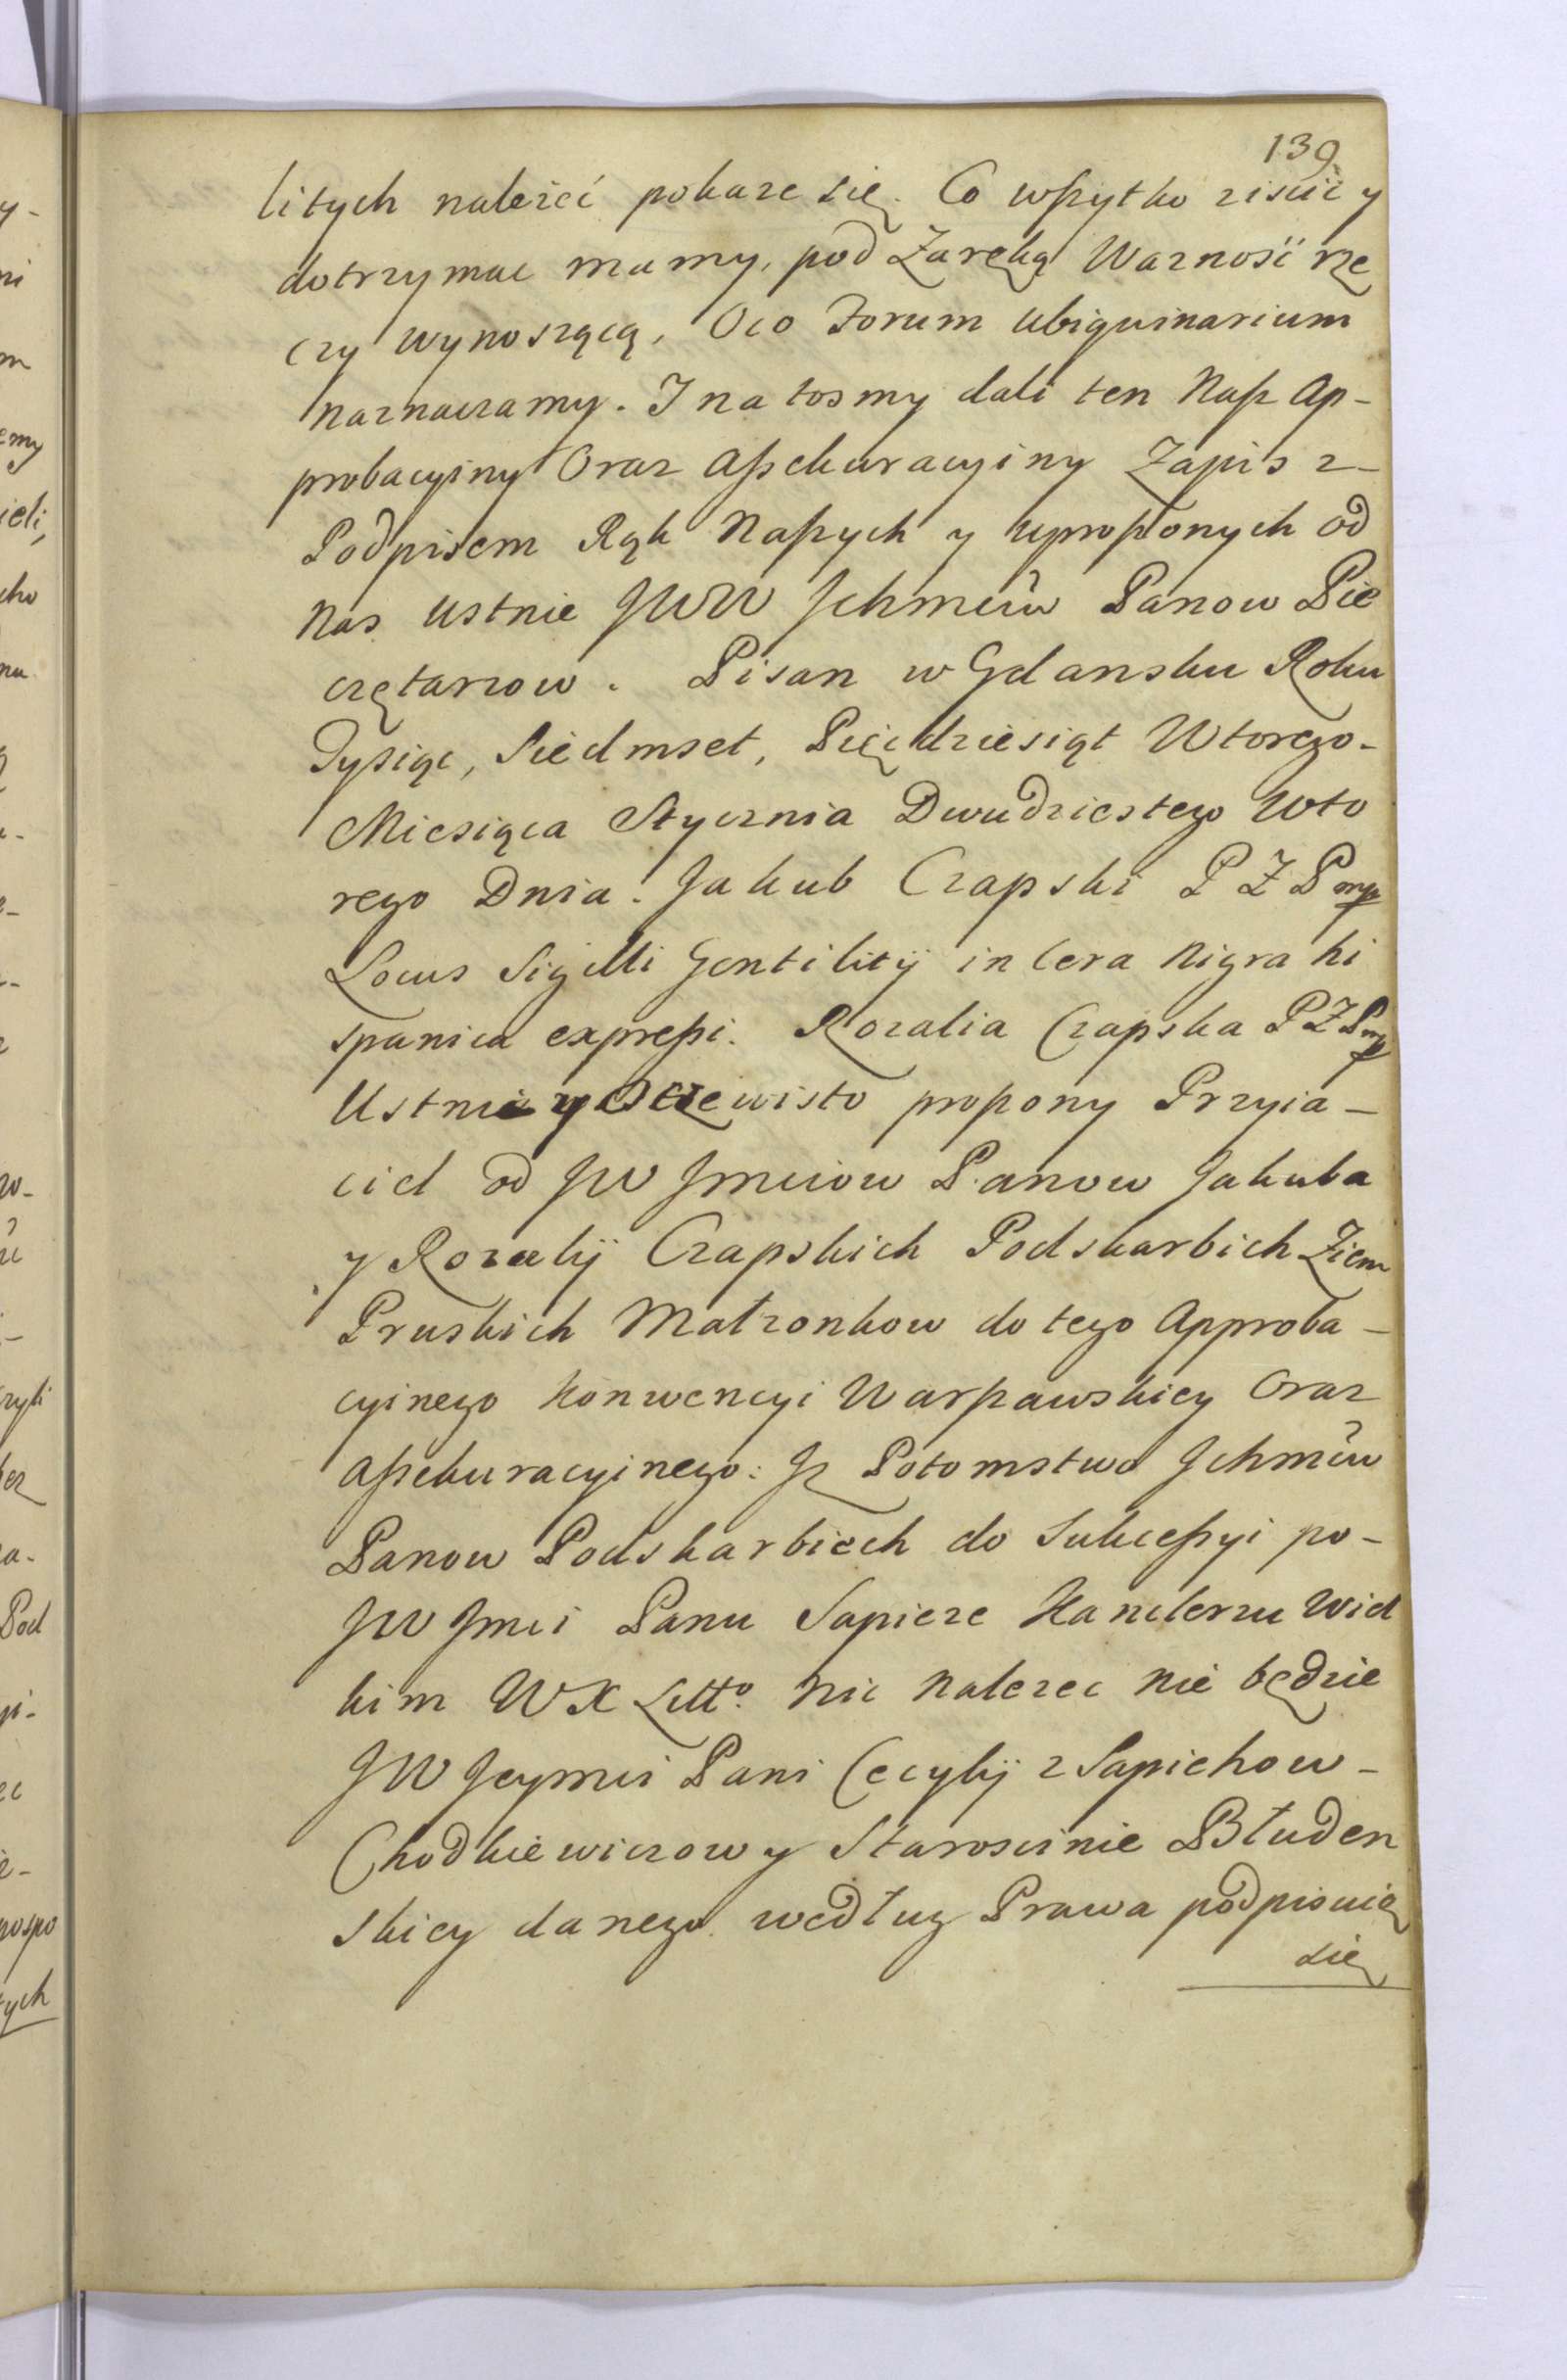 139
litych należeć pokaze się. Co wszytko ziscić y
dotrzymac mamy, pod Zaręką Waznosć rze
czy wynoszącą, Oco Forum Ubiquinarium
naznaczamy. I na tosmy dali ten Nasz Ap-
probacyiny Oraz Assekuracyiny Zapis z-
Podpisem Rąk Naszych y uproszonych od
Nas Ustnie JWW Jchmciw Panow Pie
czętarzow. Pisan w Gdansku Roku
Tysiąc, Siedmset, Pięćdziesiąt Wtorego-
Miesiąca Stycznia Dwudziestego Wto
rego Dnia. Jakub Czapski P Z P mp
Locus Sigilli Gentilitij in Cera Nigra hi
spanica expressi. Rozalia Czapska P Z P mp
Ustnie y Oczewisto proszony Przyia-
ciel od JW Jmciow Panow Jakuba
y Rozalij Czapskich Podskarbich Ziem
Pruskich Małzonkow do tego Approba-
cyinego Konwencyi Warszawskiey Oraz
Assekuracyinego: Jz Potomstwo Jchmciw
Panow Podskarbiech do Sukcessyi po-
JW Jmci Panu Sapieze Kanclerzu Wiel
kim W X Litto. Nic Nalezec nie będzie
JW Jeymci Pani Cecylij z Sapiehow-
Chodkiewiczowy Staroscinie Błuden
skiey danego według Prawa podpisuię
się